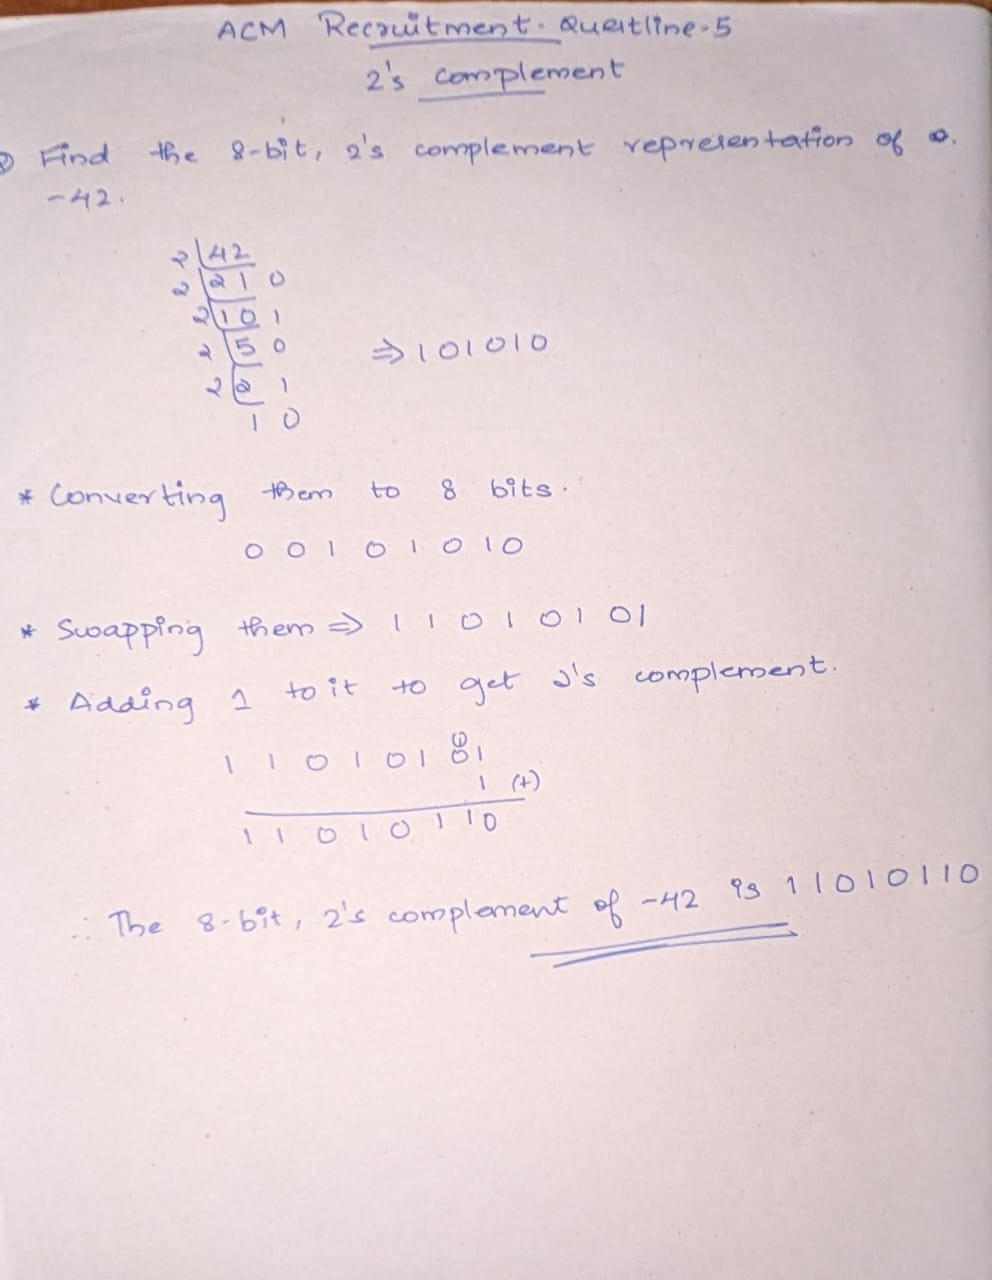 ACM Recruitment. Questline-5
2's complement
Find the 8-bit, 2's complement representation of
-42.
2 42
2 21 0
2 10 1
2 5 0 ⇒ 101010
2 2 1
1 0
* Converting them to 8 bits.
0 0 1 0 1 0 1 0
* Swapping them ⇒ 1 1 0 1 0 1 0 1
* Adding 1 to it to get 2's complement.
1 1 0 1 0 1 0 1
1 (+)
1 1 0 1 0 1 1 0
∴ The 8-bit, 2's complement of -42 is 11010110